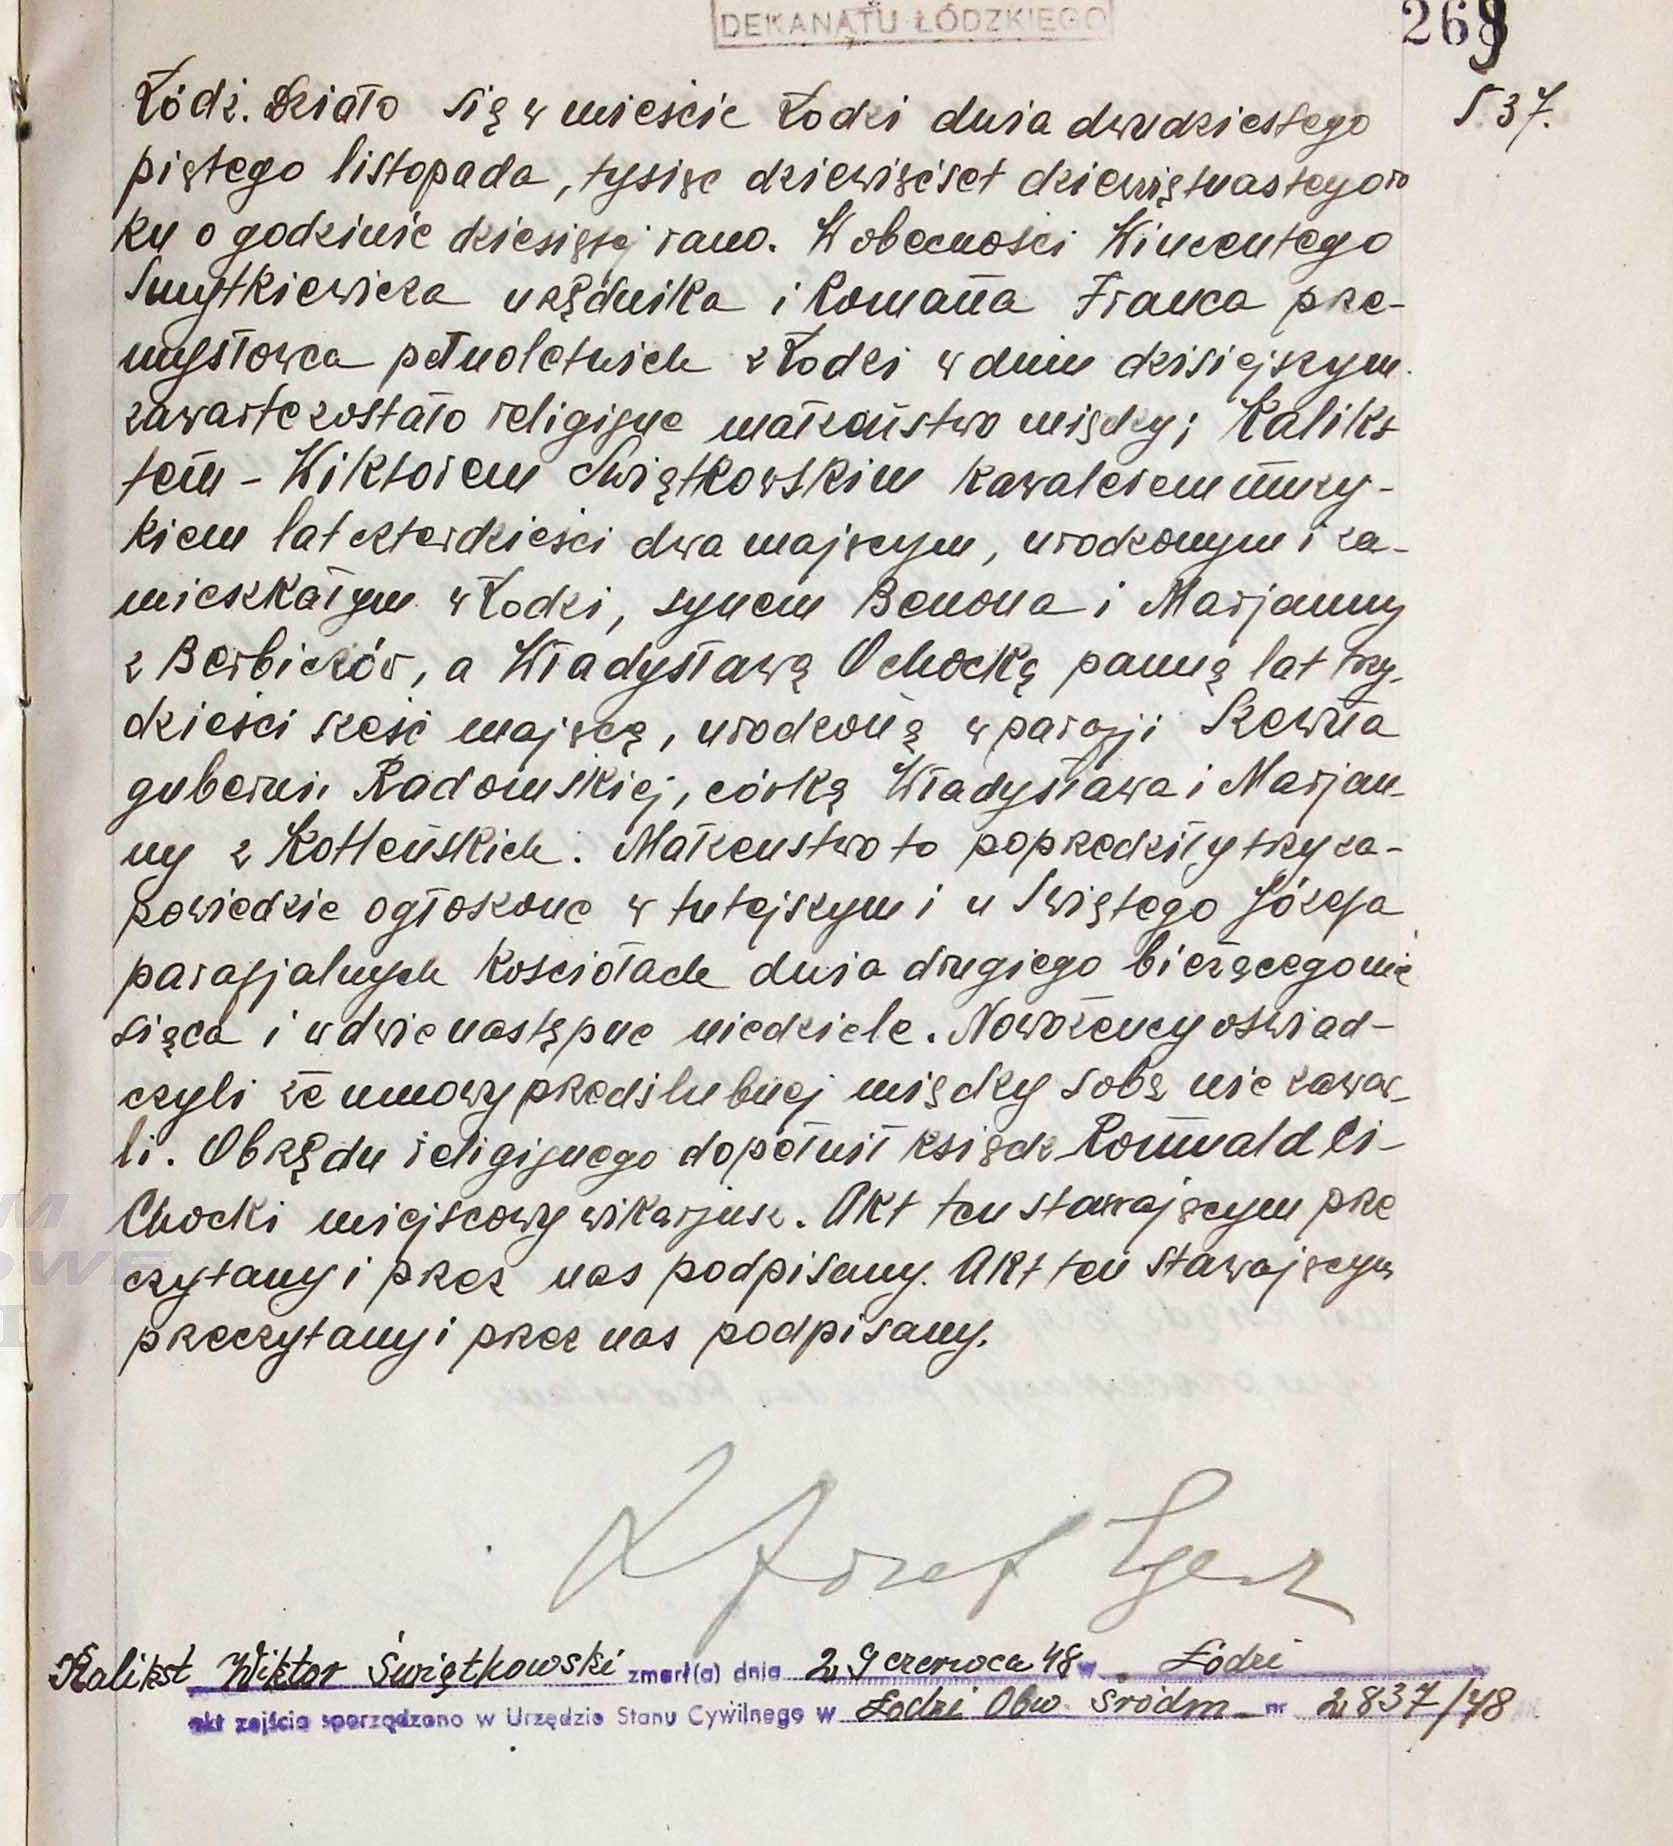 DEKANATU ŁÓDZKIEGO
269
537.
Łódź. Działo się w mieście Łodzi dnia dwudziestego
piętego listopada, tysiąc dziewięćset dziewiętnastego ro
ku o godzinie dziesiątej rano. W obecności Wincentego
Smytkiewicza urzędnika i Romana Franca prze-
mysłowca pełnoletnich z Łodzi w dniu dzisiejszym
zawarte zostało religijne małżeństwo między; Kaliks
tem - Wiktorem Świątkowskim kawalerem muzy-
kiem lat czterdzieści dwa mającym, urodzonym i za-
mieszkałym w Łodzi, synem Benona i Marjanny
z Berbiczów, a Władysławą Ochocką panną lat trzy-
dzieści sześć mającą, urodzoną w parafji Szewna
guberni Radomskiej, córką Władysława i Marjan-
ny z Kotleńskich. Małżeństwo to poprzedziły trzy za-
powiedzie ogłoszone w tutejszym i u Świętego Józefa
parafjalnych kościołach dnia drugiego bieżącego mie
siąca i w dwie następne niedziele. Nowożeńcy oświad-
czyli że umowy przedślubnej między sobą nie zawar-
li. Obrzędu religijnego dopełnił ksiądz Romuald Ci-
chocki miejscowy wikarjusz. Akt ten stawającym prze
czytany i przez nas podpisany. Akt ten stawającym
przeczytany i przez nas podpisany.
X Józef
Kalikst Wiktor Świątkowski zmarł(a) dnia 29 czerwca 48 w Łodzi
akt zejścia sporządzono w Urzędzie Stanu Cywilnego w Łodzi Obw. Śródm - nr 2837/48